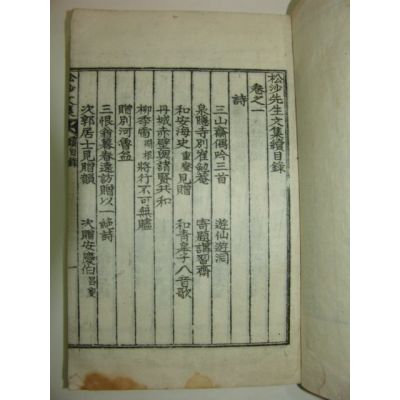 松沙先生文集續目錄
卷之一
詩
三山齋偶吟三首 遊仙遊洞
泉隱寺別崔勉菴 寄題講習齋
和安海史重燮見贈 和青皋子八音歌
丹城赤壁 諸賢共和
柳季膚 根將行不可無贐
贈別河魯 
三恨翁暮春遠訪贈以一絶詩
次郭居士見贈韻 次贈安慶伯
松沙文集 續目錄 一